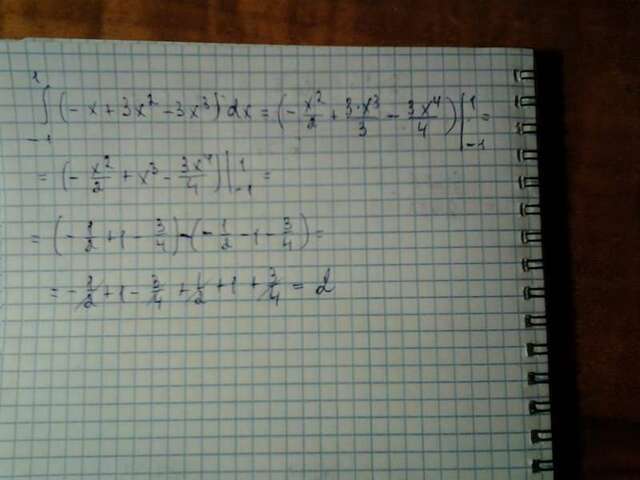 ∫₋₁¹ (-x + 3x² - 3x³) dx = (-x²/2 + 3·x³/3 - 3x⁴/4)|₋₁¹ =
= (-x²/2 + x³ - 3x⁴/4)|₋₁¹ =
= (-1/2 + 1 - 3/4) - (-1/2 - 1 - 3/4) =
= -1/2 + 1 - 3/4 + 1/2 + 1 + 3/4 = 2